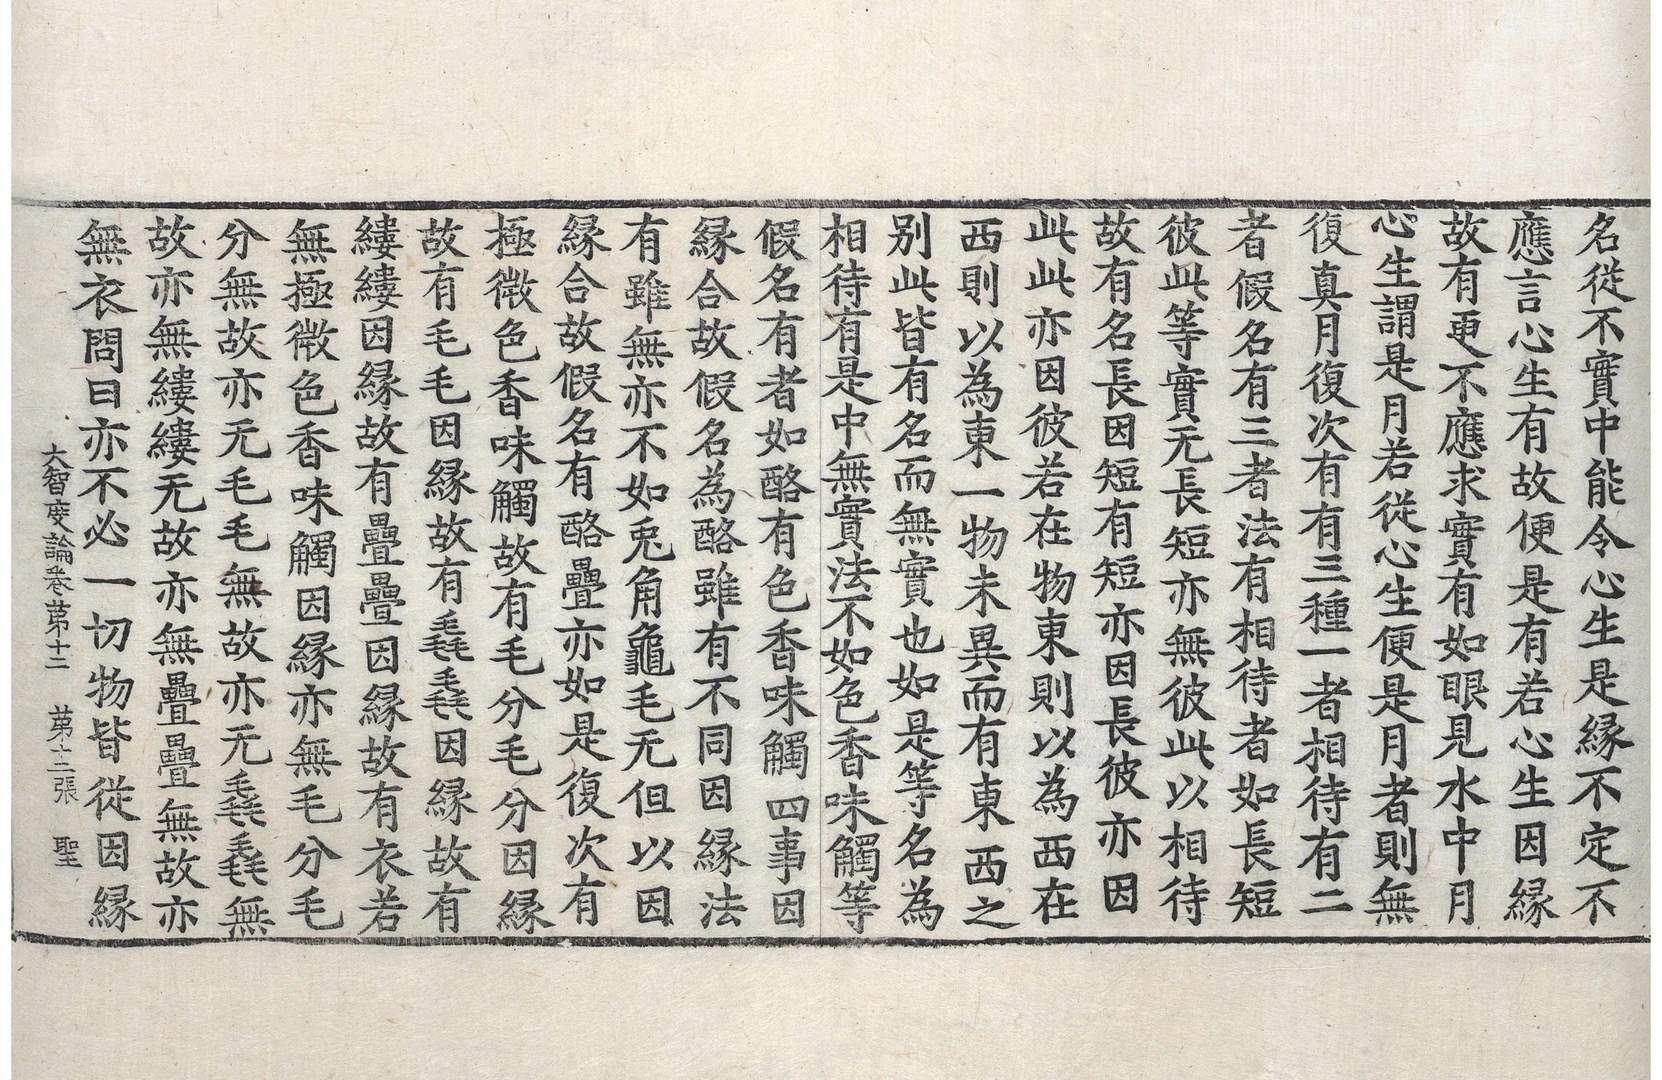 名從不實中能令心生是縁不定不
應言心生有故便是有若心生因縁
故有更不應求實有如眼見水中月
心生謂是月若從心生便是月者則無
復真月復次有有三種一者相待有二
者假名有三者法有相待者如長短
彼此等實无長短亦無彼此以相待
故有名長因短有短亦因長彼亦因
此此亦因彼若在物東則以為西在
西則以為東一物未異而有東西之
別此皆有名而無實也如是等名為
相待有是中無實法不如色香味觸等
假名有者如酪有色香味觸四事因
縁合故假名為酪雖有不同因縁法
有雖無亦不如兎角龜毛无但以因
縁合故假名有酪疊亦如是復次有
極微色香味觸故有毛分毛分因縁
故有毛毛因縁故有毳毳因縁故有
縷縷因縁故有疊疊因縁故有衣若
無極微色香味觸因縁亦無毛分毛
分無故亦无毛毛無故亦无毳毳無
故亦無縷縷无故亦無疊疊無故亦
無衣問曰亦不必一切物皆從因縁
大智度論卷苐十二 苐十二張 聖